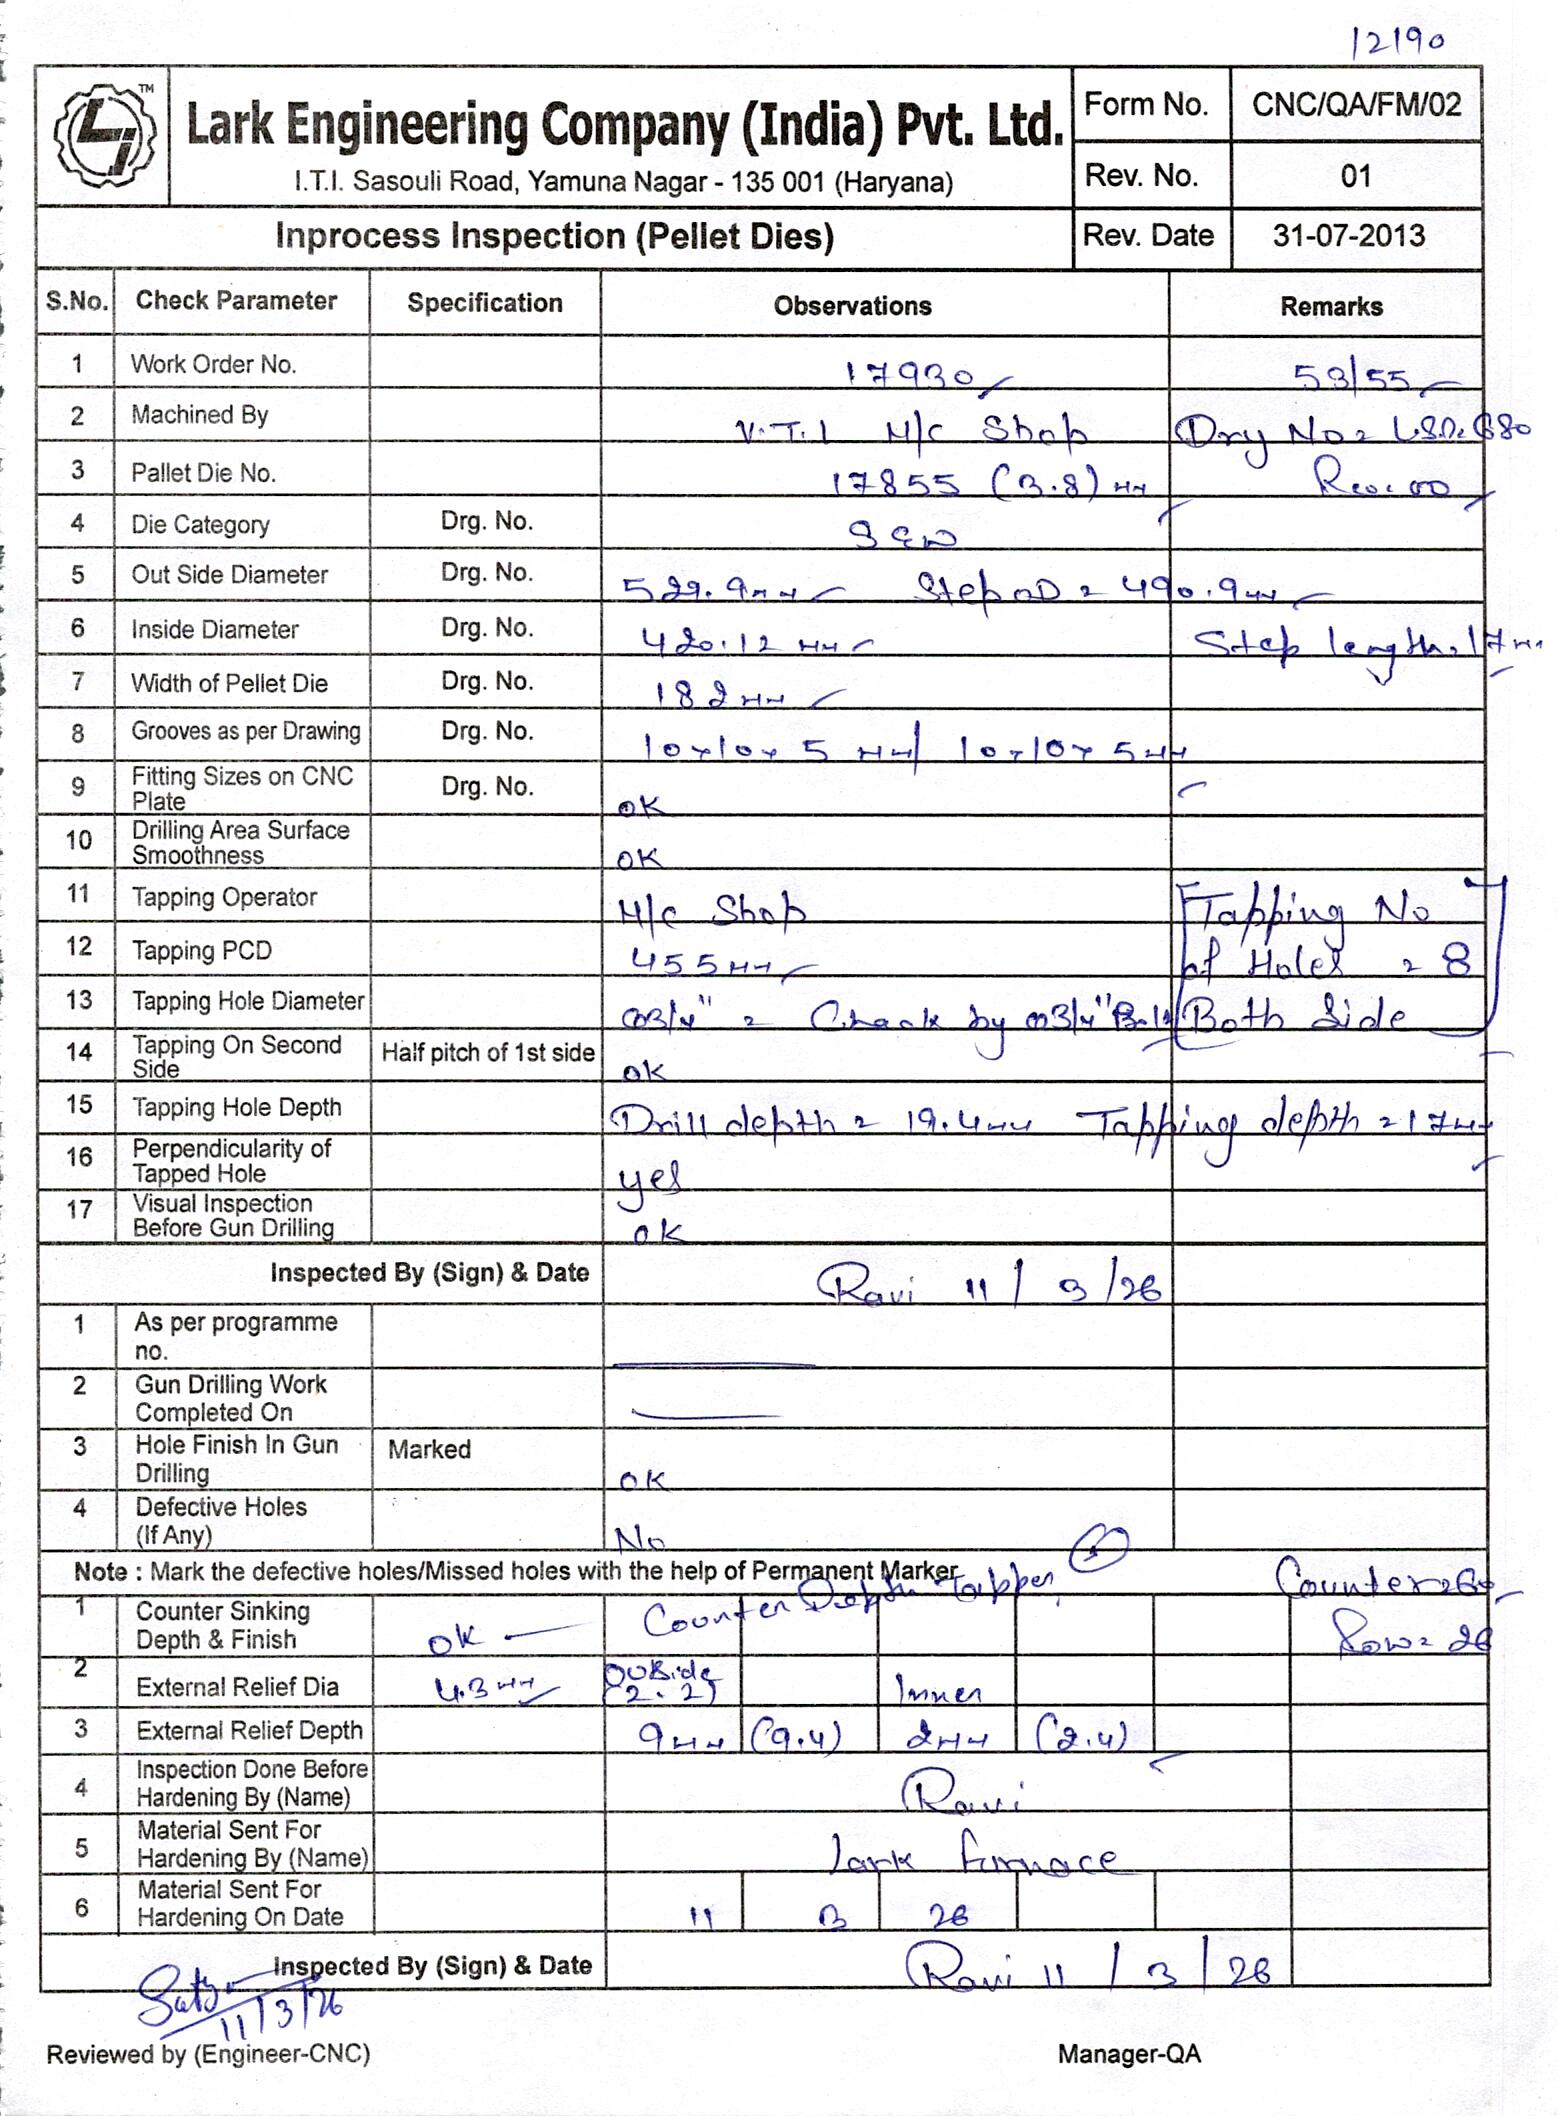 12190
TM
Lark Engineering Company (India) Pvt. Ltd.
I.T.I. Sasouli Road, Yamuna Nagar - 135 001 (Haryana)
Form No. CNC/QA/FM/02
Rev. No. 01
Inprocess Inspection (Pellet Dies)
Rev. Date 31-07-2013
S.No. Check Parameter Specification Observations Remarks
1 Work Order No. 17930 53/55
2 Machined By V.T.I M/C Shop Drg No =
3 Pallet Die No. 17855 (3.8) mm Rev: 00
4 Die Category Drg. No.
5 Out Side Diameter Drg. No. 529.9mm Step OD = 490.9mm
6 Inside Diameter Drg. No. 420.12 mm Step length = 17mm
7 Width of Pellet Die Drg. No. 182mm
8 Grooves as per Drawing Drg. No. 10x10x5 mm/ 10x10x5mm
9 Fitting Sizes on CNC Plate Drg. No. OK
10 Drilling Area Surface Smoothness OK
11 Tapping Operator M/C Shop [Tapping No
12 Tapping PCD 455mm of Holes = 8
13 Tapping Hole Diameter Ø3/4" = Check by Ø3/4" Bolt Both Side]
14 Tapping On Second Side Half pitch of 1st side OK
15 Tapping Hole Depth Drill depth = 19.4mm Tapping depth = 17mm
16 Perpendicularity of Tapped Hole yes
17 Visual Inspection Before Gun Drilling OK
Inspected By (Sign) & Date Ravi 11/3/26
1 As per programme no.
2 Gun Drilling Work Completed On
3 Hole Finish In Gun Drilling Marked OK
4 Defective Holes (If Any) No
Note : Mark the defective holes/Missed holes with the help of Permanent Marker
1 Counter Sinking Depth & Finish OK Counter Depth Tapper Counter = 60
Row = 26
2 External Relief Dia 4.3mm Outside (2.2) Inner
3 External Relief Depth 9mm (9.4) 2mm (2.4)
4 Inspection Done Before Hardening By (Name) Ravi
5 Material Sent For Hardening By (Name) Lark furnace
6 Material Sent For Hardening On Date 11 3 26
Inspected By (Sign) & Date Ravi 11/3/26
11/3/26
Reviewed by (Engineer-CNC) Manager-QA